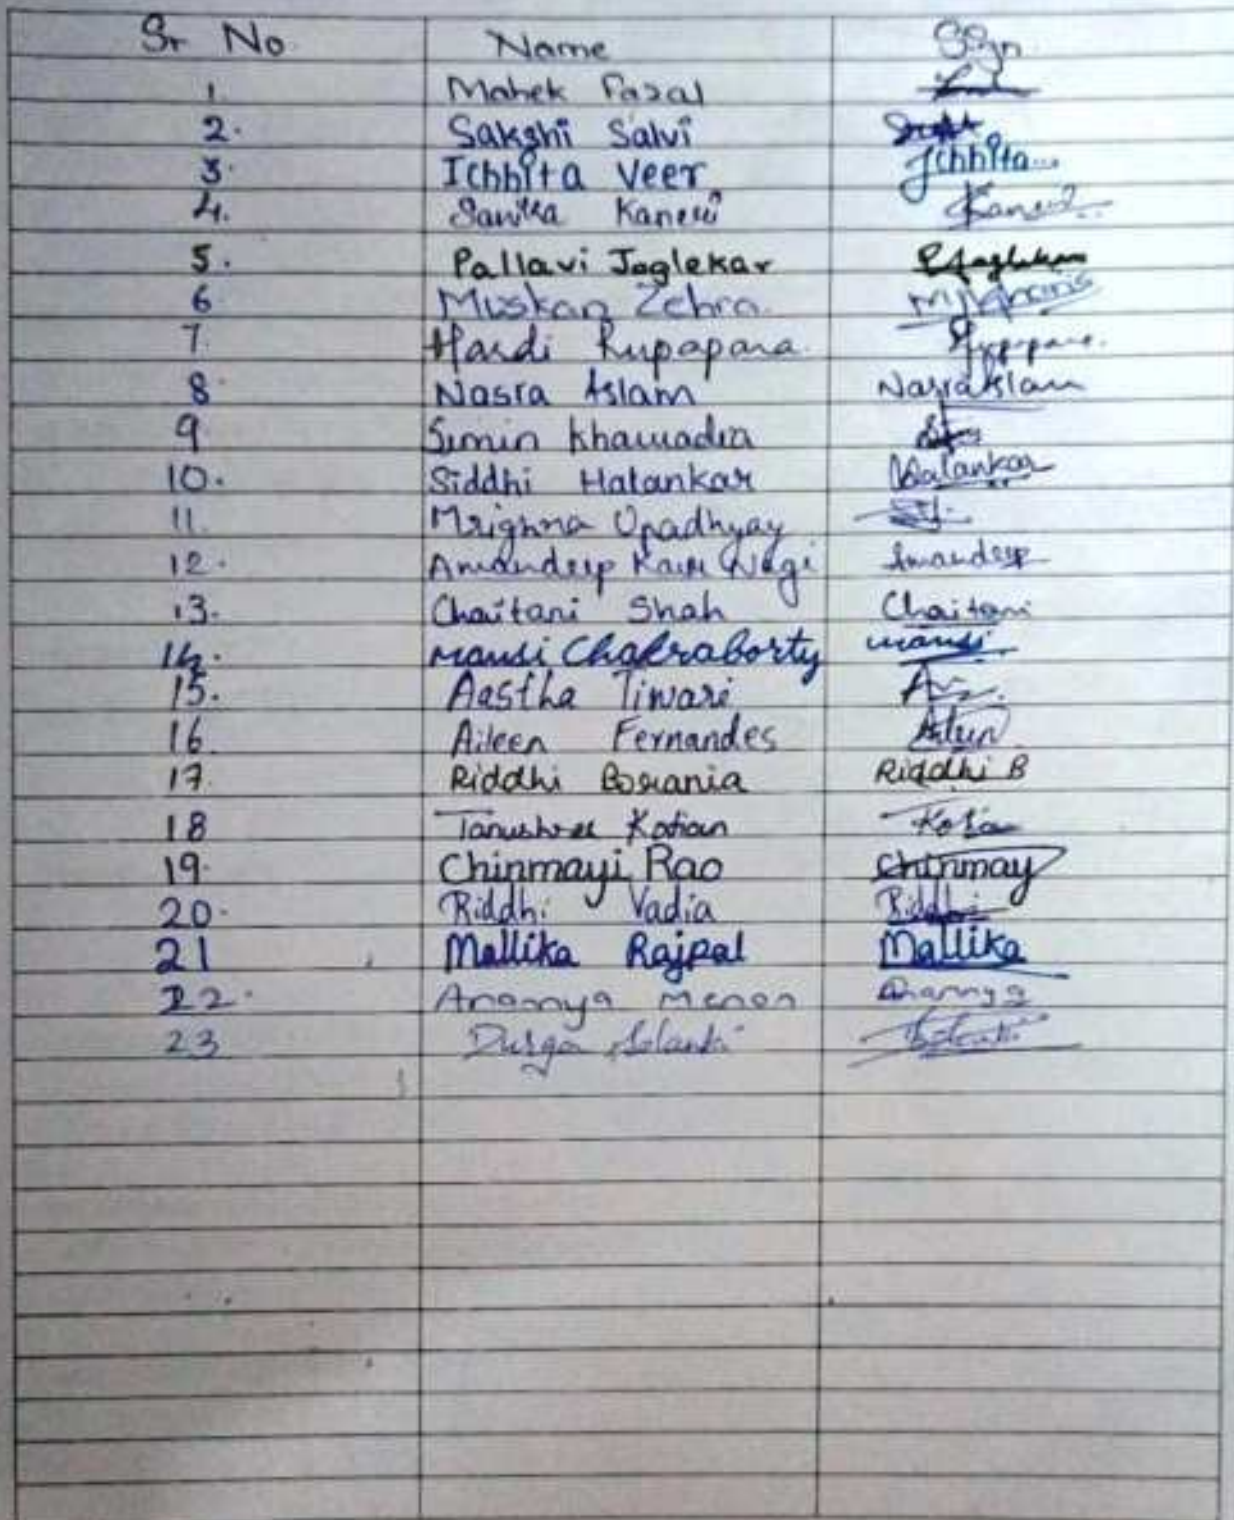 Sr No. Name Sign
1 Mahek Fazal
2. Sakshi Salvi
3. Ichhita Veer Ichhita
4. Sanika
5. Pallavi Joglekar PJoglekar
6 Muskan Zehra
7. Hardi Rupapara
8 Nasra Aslam Nasra Aslam
9 Simin Khawadia
10. Siddhi Hatankar Hatankar
11. Mrighna Upadhyay
12. Amandeep Kaur Nagi Amandeep
13. Chaitani Shah Chaitani
14. Mansi Chakraborty mansi
15. Aastha Tiwari
16 Aileen Fernandes Aileen
17. Riddhi Borania Riddhi B
18 Tanushree Kotian
19. Chinmayi Rao Chinmay
20. Riddhi Vadia Riddhi
21 Mallika Rajpal Mallika
22. Anannya Menon Anannya
23 Durga Solanki Solanki